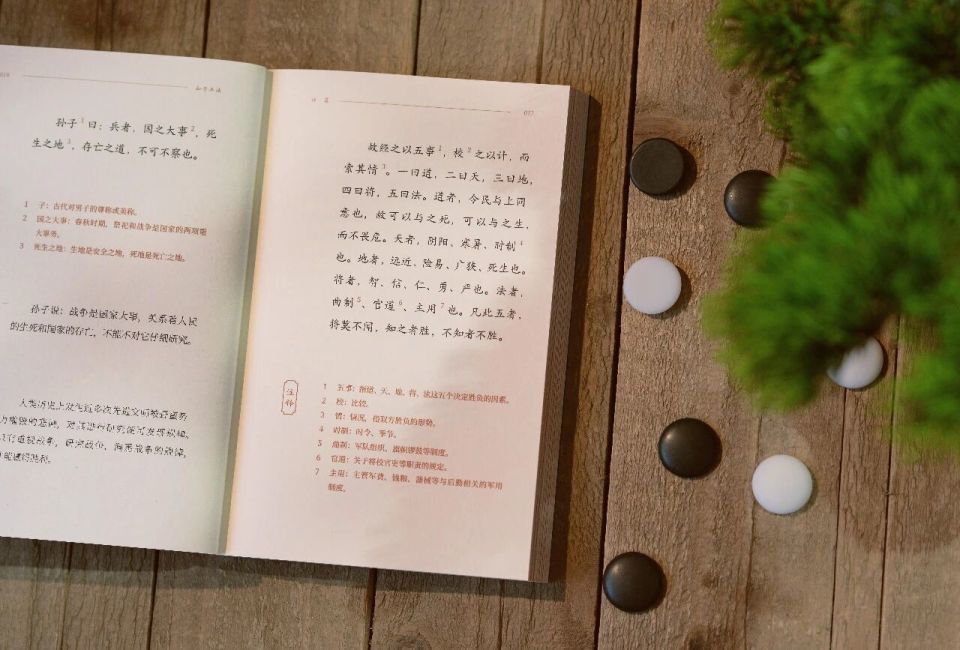 孙子兵法
孙子1曰：兵者，国之大事2，死
生之地3，存亡之道，不可不察也。
1 子：古代对男子的尊称或美称。
2 国之大事：春秋时期，祭祀和战争是国家的两项重
大事务。
3 死生之地：生地是安全之地，死地是死亡之地。
孙子说：战争是国家大事，关系着人民
的生死和国家的存亡，不能不对它仔细研究。
人类历史上发生过多次先进文明被野蛮势
力摧毁的悲剧，对其进行研究便可发现规律。
只有重视战争，研究战争，洞悉战争的规律，
计 篇
故经之以五事1，校2之以计，而
索其情3。一曰道，二曰天，三曰地，
四曰将，五曰法。道者，令民与上同
意也，故可以与之死，可以与之生，
而不畏危。天者，阴阳、寒暑、时制4
也。地者，远近、险易、广狭、死生也。
将者，智、信、仁、勇、严也。法者，
曲制5、官道6、主用7也。凡此五者，
将莫不闻，知之者胜，不知者不胜。
注释
1 五事：指道、天、地、将、法这五个决定胜负的因素。
2 校：比较。
3 情：情况，指双方胜负的形势。
4 时制：时令、季节。
5 曲制：军队组织、旗帜锣鼓等制度。
6 官道：关于将校官吏等职责的规定。
7 主用：主管军费、钱粮、器械等与后勤相关的军用
制度。